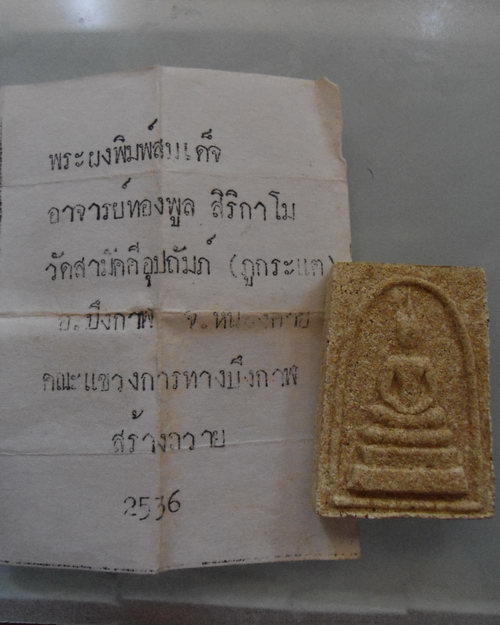 พระผงพิมพ์สมเด็จ
อาจารย์ทองพูล สิริกาโม
วัดสามัคคีอุปถัมภ์ (ภูกระแต)
อ.บึงกาฬ จ.หนองคาย
คณะแขวงการทางบึงกาฬ
สร้างถวาย
2536